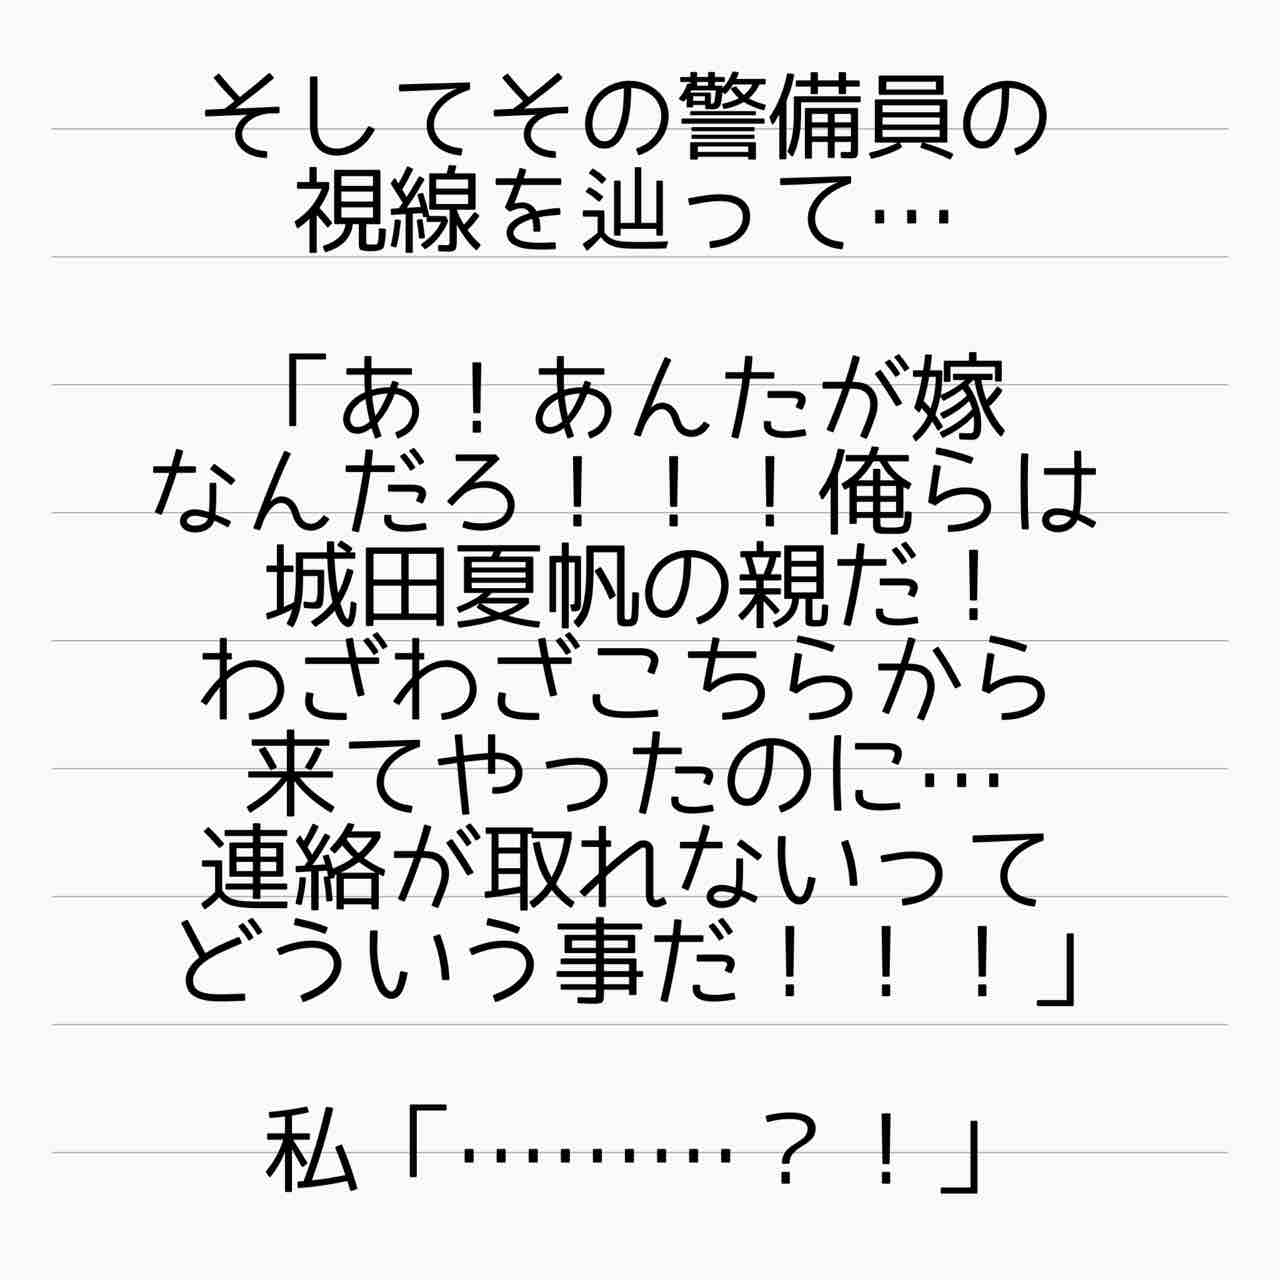 そしてその警備員の
視線を辿って…
「あ！あんたが嫁
なんだろ！！！俺らは
城田夏帆の親だ！
わざわざこちらから
来てやったのに…
連絡が取れないって
どういう事だ！！！」
私「………？！」